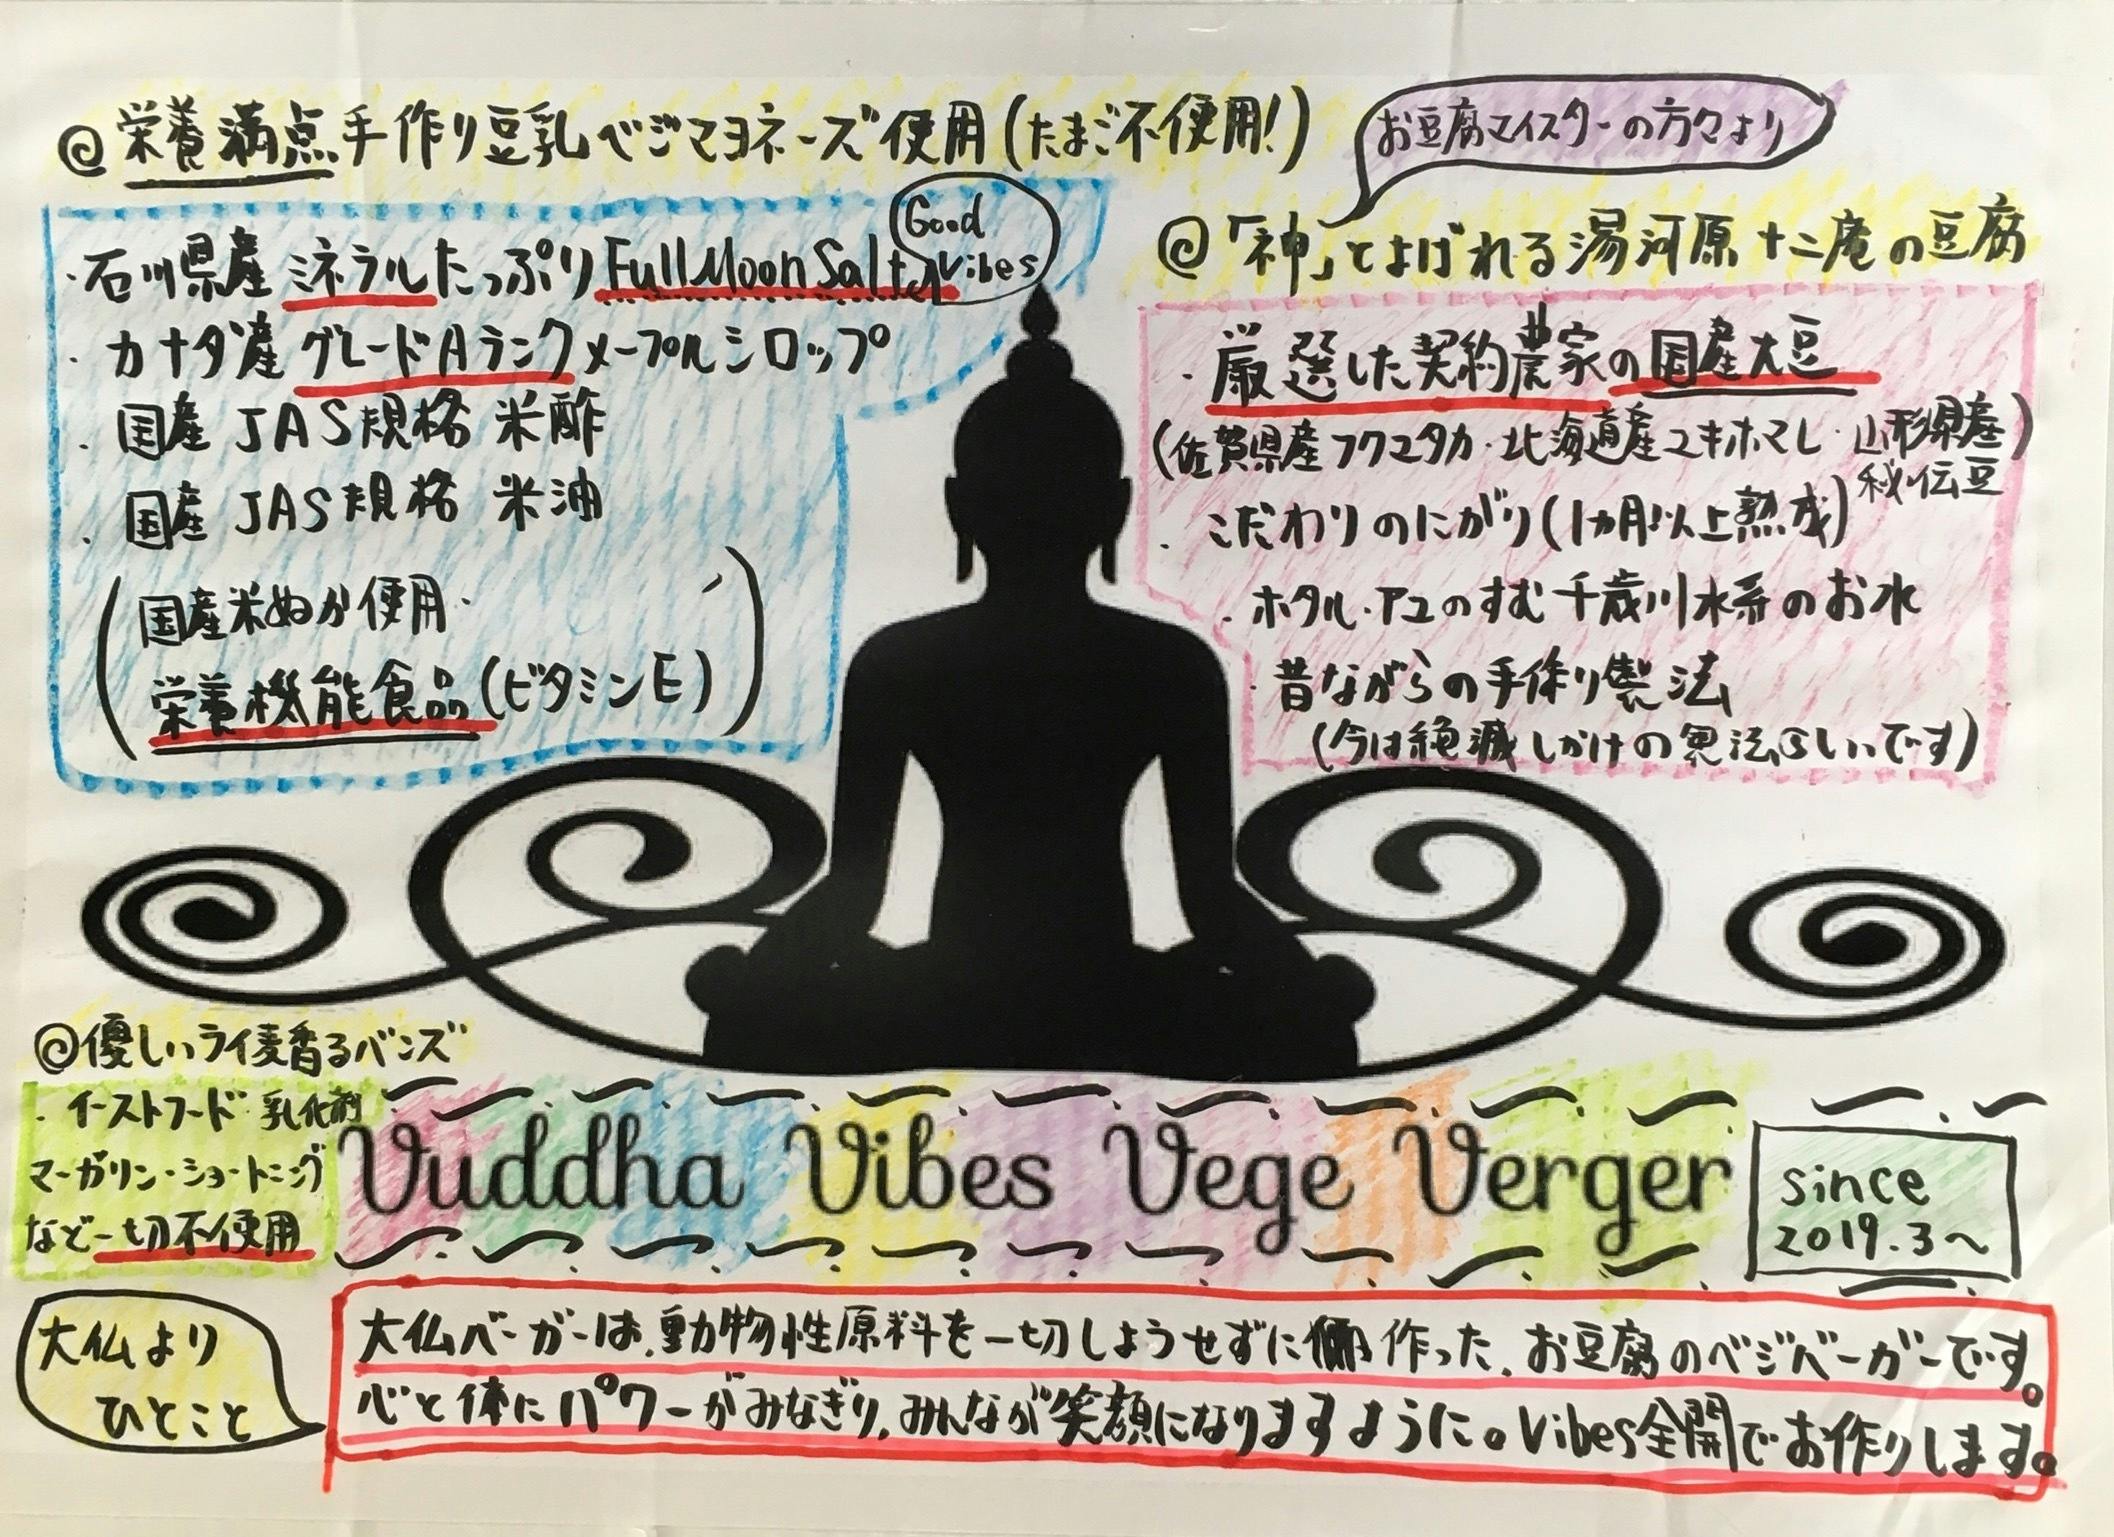 @栄養満点手作り豆乳ベジマヨネーズ使用(たまご不使用!)
・石川県産ミネラルたっぷりFull Moon Salt
Good
Vibes
・カナダ産グレードAランクメープルシロップ
・国産 JAS規格 米酢
・国産 JAS規格 米油
(国産米ぬか使用・
栄養機能食品(ビタミンE))
お豆腐マイスターの方々より
@「神」とよばれる湯河原十二庵の豆腐
・厳選した契約農家の国産大豆
(佐賀県産フクユタカ・北海道産ユキホマレ・山形県産
秘伝豆)
・こだわりのにがり(1カ月以上熟成)
・ホタル・アユのすむ千歳川水系のお水
・昔ながらの手作り製法
(今は絶滅しかけの製法らしいです)
@優しいライ麦香るバンズ
・イーストフード・乳化剤
マーガリン・ショートニング
など一切不使用
Vuddha Vibes Vege Verger
since
2019.3～
大仏より
ひとこと
大仏バーガーは、動物性原料を一切しようせずに作った、お豆腐のベジバーガーです。
心と体にパワーがみなぎり、みんなが笑顔になりますように。Vibes全開でお作りします。